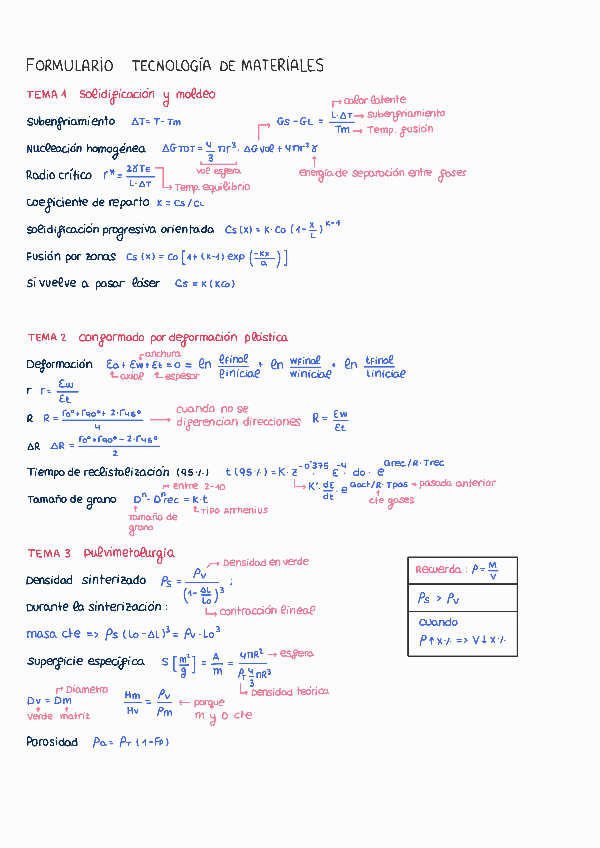 FORMULARIO TECNOLOGÍA DE MATERIALES
TEMA 1 Solidificación y moldeo
Subenfriamiento ΔT = T - Tm
Gs - GL = L·ΔT / Tm
→ calor latente
→ subenfriamiento
→ Temp. fusión
Nucleación homogénea ΔG TOT = 4/3 πr³ · ΔG vol + 4πr²γ
vol esfera
energía de separación entre fases
Radio crítico r* = 2γTE / L·ΔT
→ Temp equilibrio
Coeficiente de reparto K = Cs/CL
Solidificación progresiva orientada Cs(x) = K·Co (1 - x/L)^K-1
Fusión por zonas Cs(x) = Co [1 + (K-1) exp (-Kx/a)]
Si vuelve a pasar láser Cs = K(KCo)
TEMA 2 conformado por deformación plástica
anchura
Deformación Ea + Ew + Et = 0 = ln lfinal/linicial + ln wfinal/winicial + ln tfinal/tinicial
axial espesor
r r = Ew/Et
R R = r0° + r90° + 2·r45° / 4 → cuando no se diferencian direcciones R = Ew/Et
ΔR ΔR = r0° + r90° - 2·r45° / 2
Tiempo de reclistalización (95%) t(95%) = K·z^-0'375 · Ė^-4 · do · e^Qrec/R·Trec
K'· dE/dt · e^Qact/R·Tpas → pasada anterior
cte gases
Tamaño de grano Dⁿ - Dⁿrec = K·t
→ Entre 2-10
Tamaño de grano
Tipo Arrhenius
TEMA 3 Pulvimetalurgia
Densidad sinterizado ρs = ρv / (1 - ΔL/Lo)³ ;
→ Densidad en verde
→ contracción lineal
Durante la sinterización :
masa cte => ρs (Lo - ΔL)³ = ρv · Lo³
Superficie específica S [m²/g] = A/m = 4πR² / ρT 4/3 πR³
→ esfera
→ Densidad teórica
→ Diametro
Dv = Dm
verde matriz
Hm/Hv = ρv/ρm ← porque m y D cte
Porosidad ρa = ρT (1 - Fp)
Recuerda : ρ = M/V
ρs > ρv
cuando
ρ↑x% => V↓x%